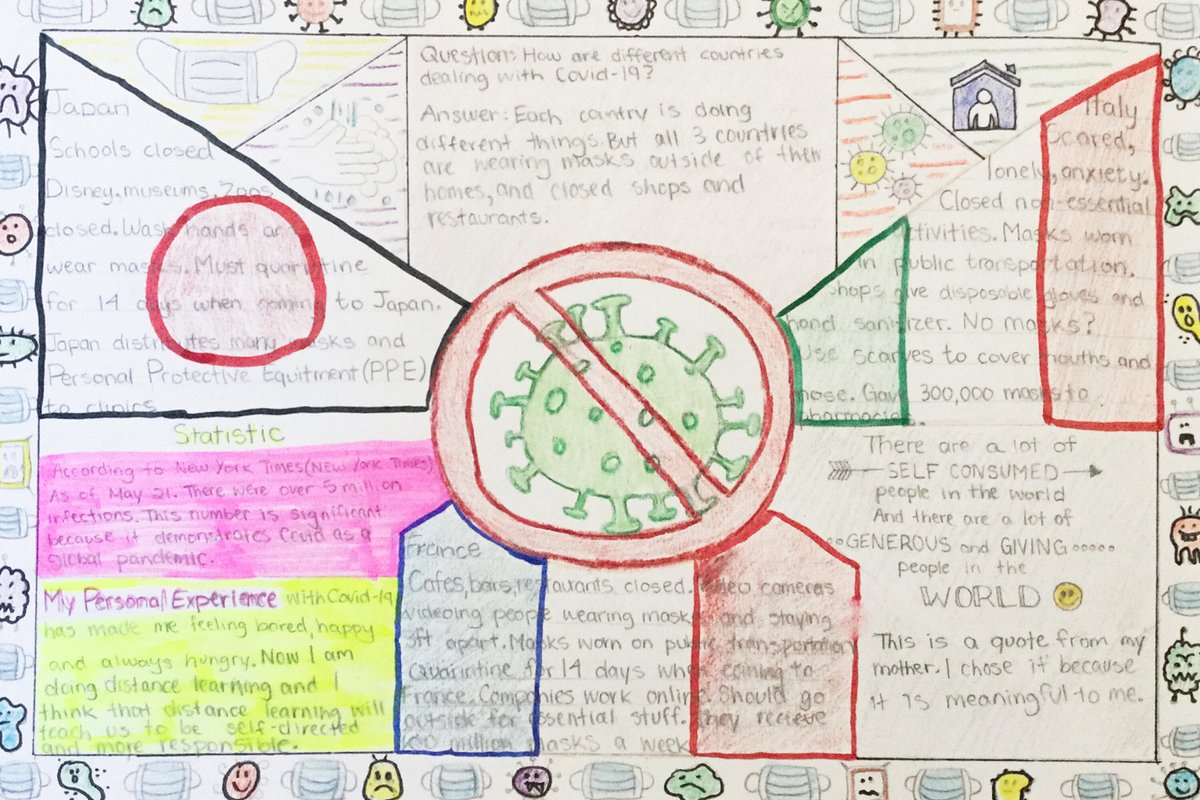 Question: How are different countries
dealing with Covid-19?
Answer: Each contry is doing
different things. But all 3 countries
are wearing masks outside of their
homes, and closed shops and
restaurants.
Japan
Schools closed
Disney, museums, Zoos
closed. Wash hands and
wear masks. Must quarintine
for 14 days when coming to Japan.
Japan distributes many masks and
Personal Protective Equitment (PPE)
to clinics
Italy
Scared,
lonely, anxiety.
Closed non-essential
activities. Masks worn
in public transportation.
Shops give disposable gloves and
hand sanitizer. No masks?
Use scarves to cover mouths and
nose. Gave 300,000 masks to
pharmacie
Statistic
According to New York Times (New York Times)
As of May 21. There were over 5 million
infections. This number is significant
because it demonstrates Covid as a
global pandemic.
My Personal Experience with Covid-19
has made me feeling bored, happy
and always hungry. Now I am
doing distance learning and I
think that distance learning will
teach us to be self-directed
and more responsible.
France
Cafes, bars, restaurants closed. Video cameras
videoing people wearing masks and staying
3ft apart. Masks worn on public transportation
Quarintine for 14 days when coming to
France. Companies work online. Should go
outside for essential stuff. They recieve
million masks a week
There are a lot of
SELF CONSUMED
people in the world
And there are a lot of
GENEROUS and GIVING
people in the
WORLD
This is a quote from my
mother. I chose it because
it is meaningful to me.